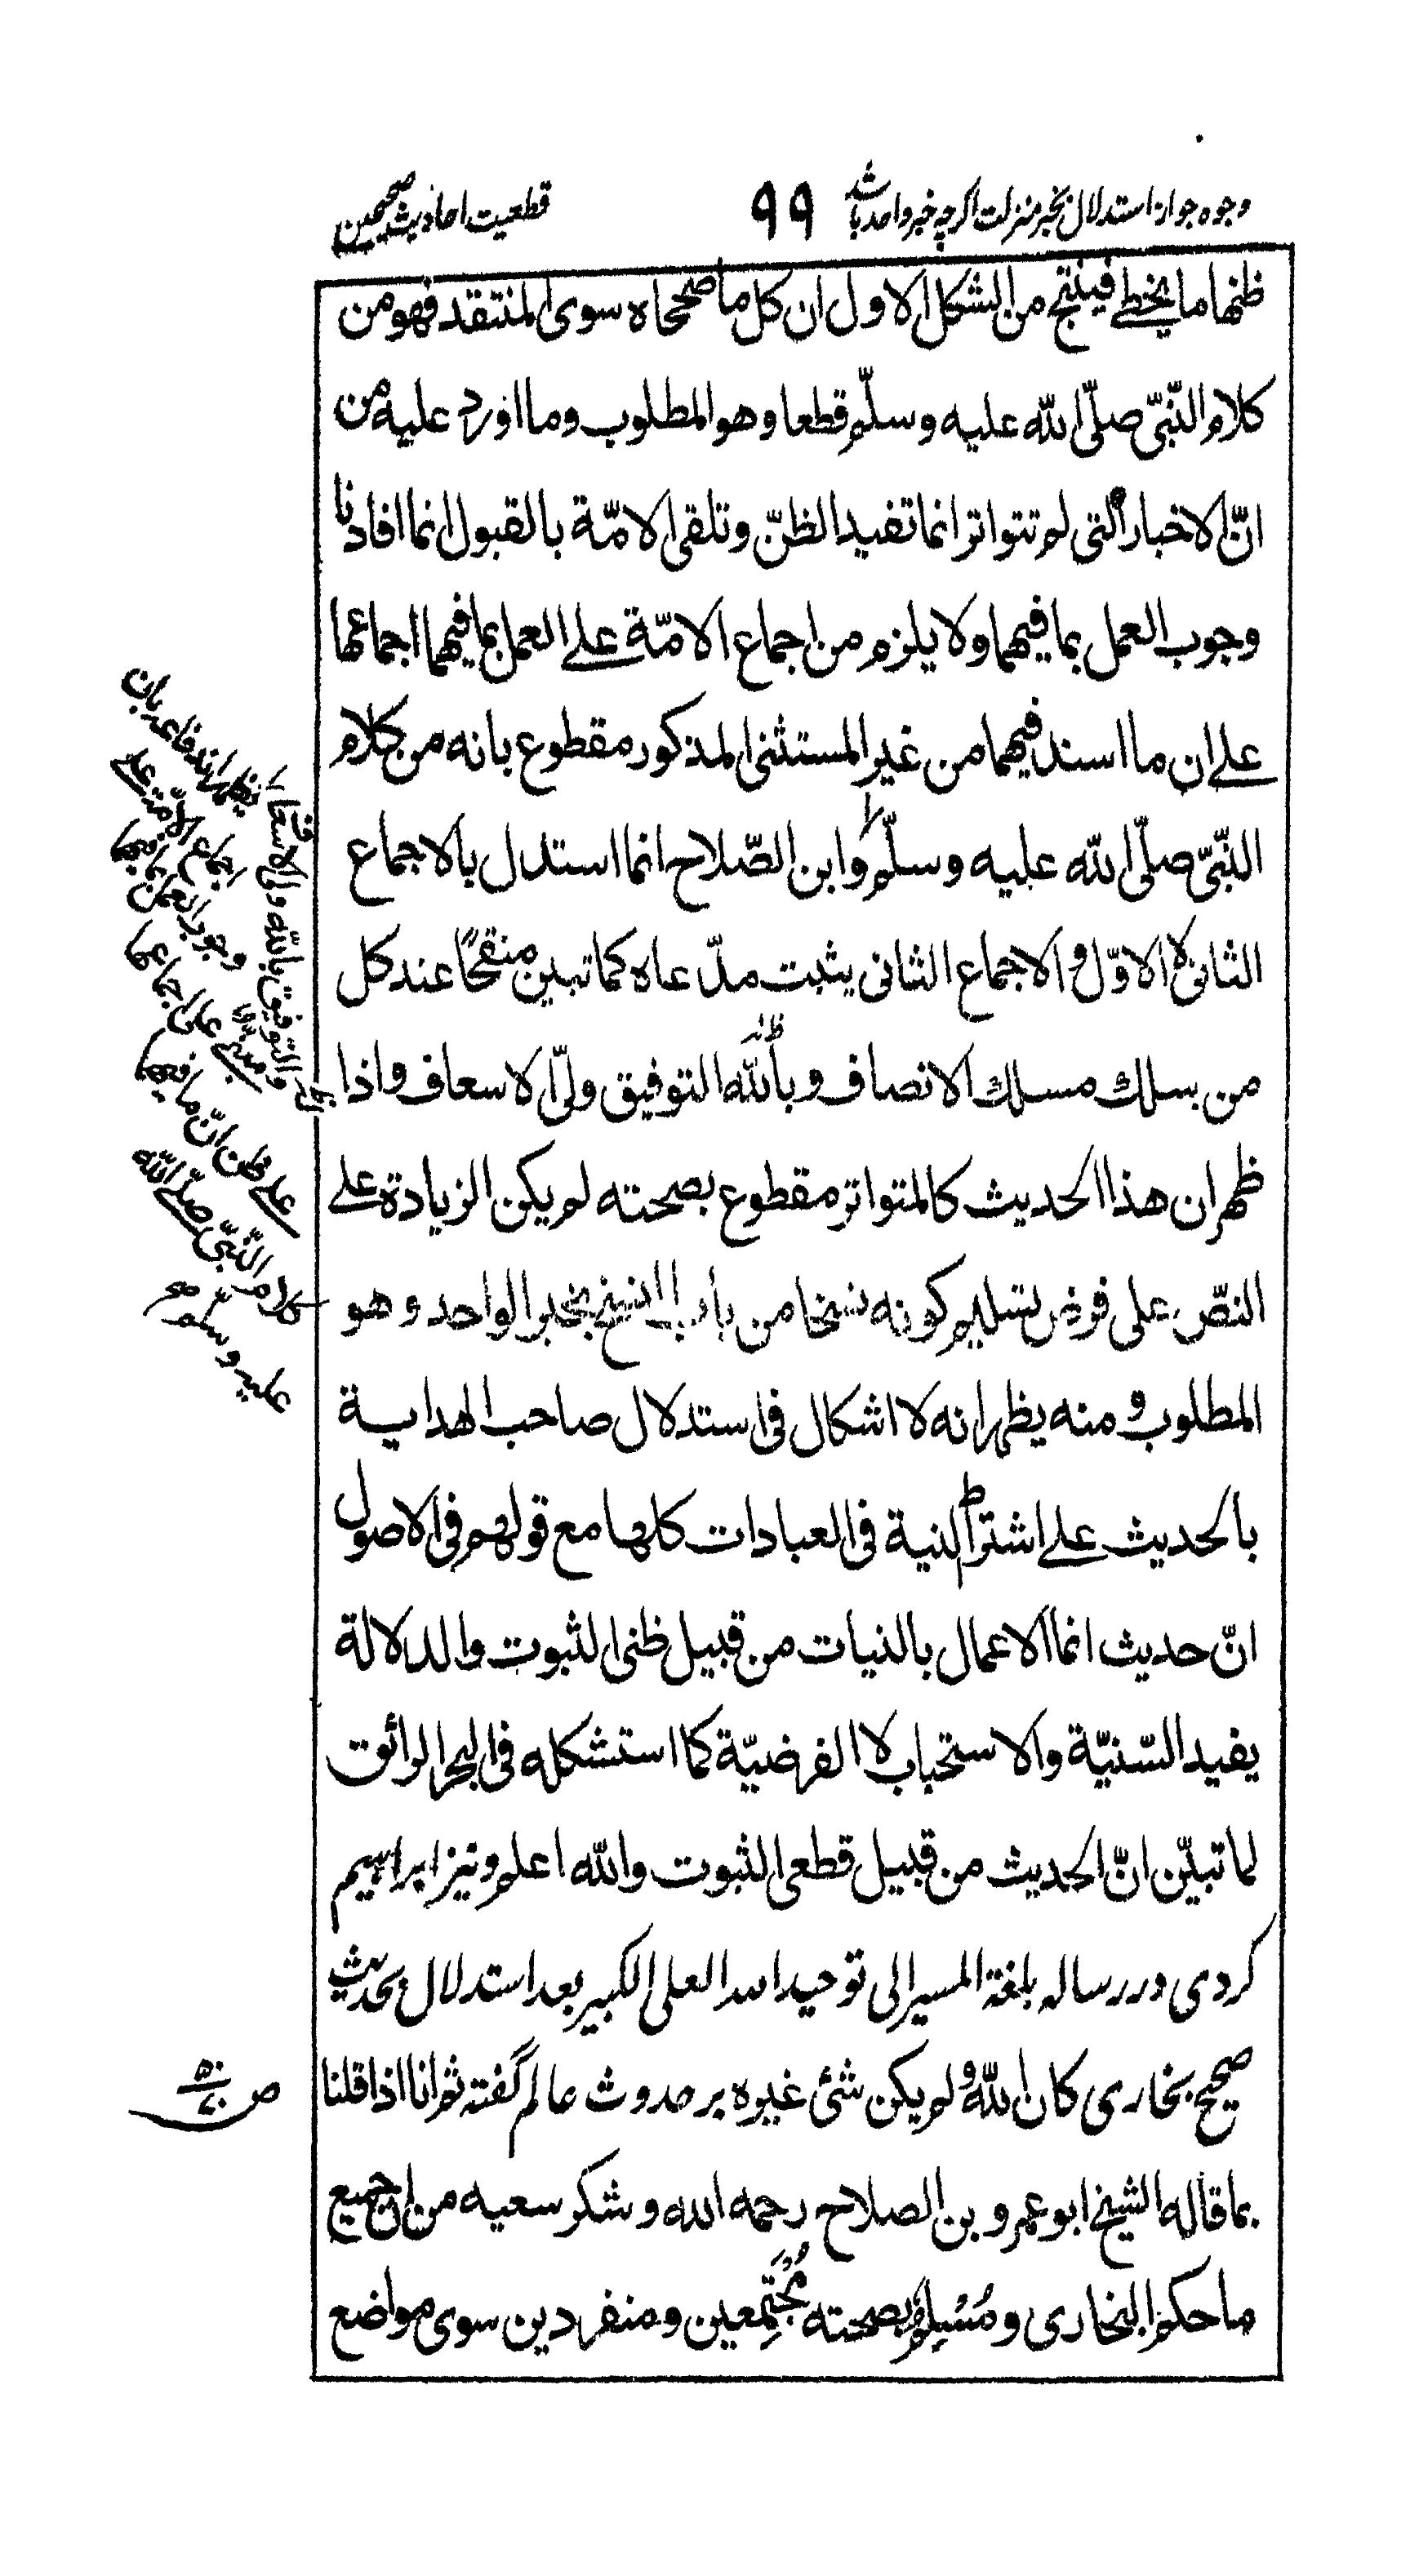 وجوه جواز استدلال بخبر منزلت اگرچه خبر واحد باشد
۹۹
قطعیت احادیث صحیحین
ظنها ما یخطی فینتج من الشکل الاول ان کل ما صححاه سوی المنتقد فهو من
کلام النّبیّ صلّی الله علیه وسلّم قطعا وهو المطلوب وما اورد علیه من
انّ الاخبار التی لم تتواتر انما تفید الظنّ وتلقی الامّة بالقبول انما افادنا
وجوب العمل بما فیهما ولا یلزم من اجماع الامّة علی العمل بما فیهما اجماعها
علی ان ما اسند فیهما من غیر المستثنی المذکور مقطوع بانه من کلام
النّبیّ صلّی الله علیه وسلّم وابن الصّلاح انما استدل بالاجماع
الثانی لا الاوّل والاجماع الثانی یثبت مدّعاه کما تبین منقحًا عند کل
من سلك مسلك الانصاف وبالله التوفیق ولیّ الاسعاف واذا
ظهر ان هذا الحدیث کالمتواتر مقطوع بصحته لم یکن الزیادة علی
النصّ علی فرض تسلیم کونه نسخا من باب النسخ بخبر الواحد وهو
المطلوب ومنه یظهر انه لا اشکال فی استدلال صاحب الهدایة
بالحدیث علی اشتراط النیة فی العبادات کلها مع قولهم فی الاصول
انّ حدیث انما الاعمال بالنیات من قبیل ظنی الثبوت والدلالة
یفید السّنیّة والاستحباب لا الفرضیّة کما استشکله فی البحر الرائق
لما تبیّن انّ الحدیث من قبیل قطعی الثبوت والله اعلم ونیز ابراهیم
کردی در رساله بلغة المسیر الی توحید الله العلی الکبیر بعد استدلال بحدیث
صحیح بخاری کان الله ولم یکن شئ غیره بر حدوث عالم گفته ثم انا اذا قلنا
بما قاله الشیخ ابو عمرو بن الصلاح رحمه الله وشکر سعیه من ان جمیع
ما حکم البخاری ومُسْلِم بصحته مُجْتَمِعین ومنفردین سوی مواضع
اجماع الامّة علی
وجوب العمل بما فیهما
علی ظن انّ ما فیهما
کلام النّبیّ صلّی الله
علیه وسلّم
ص